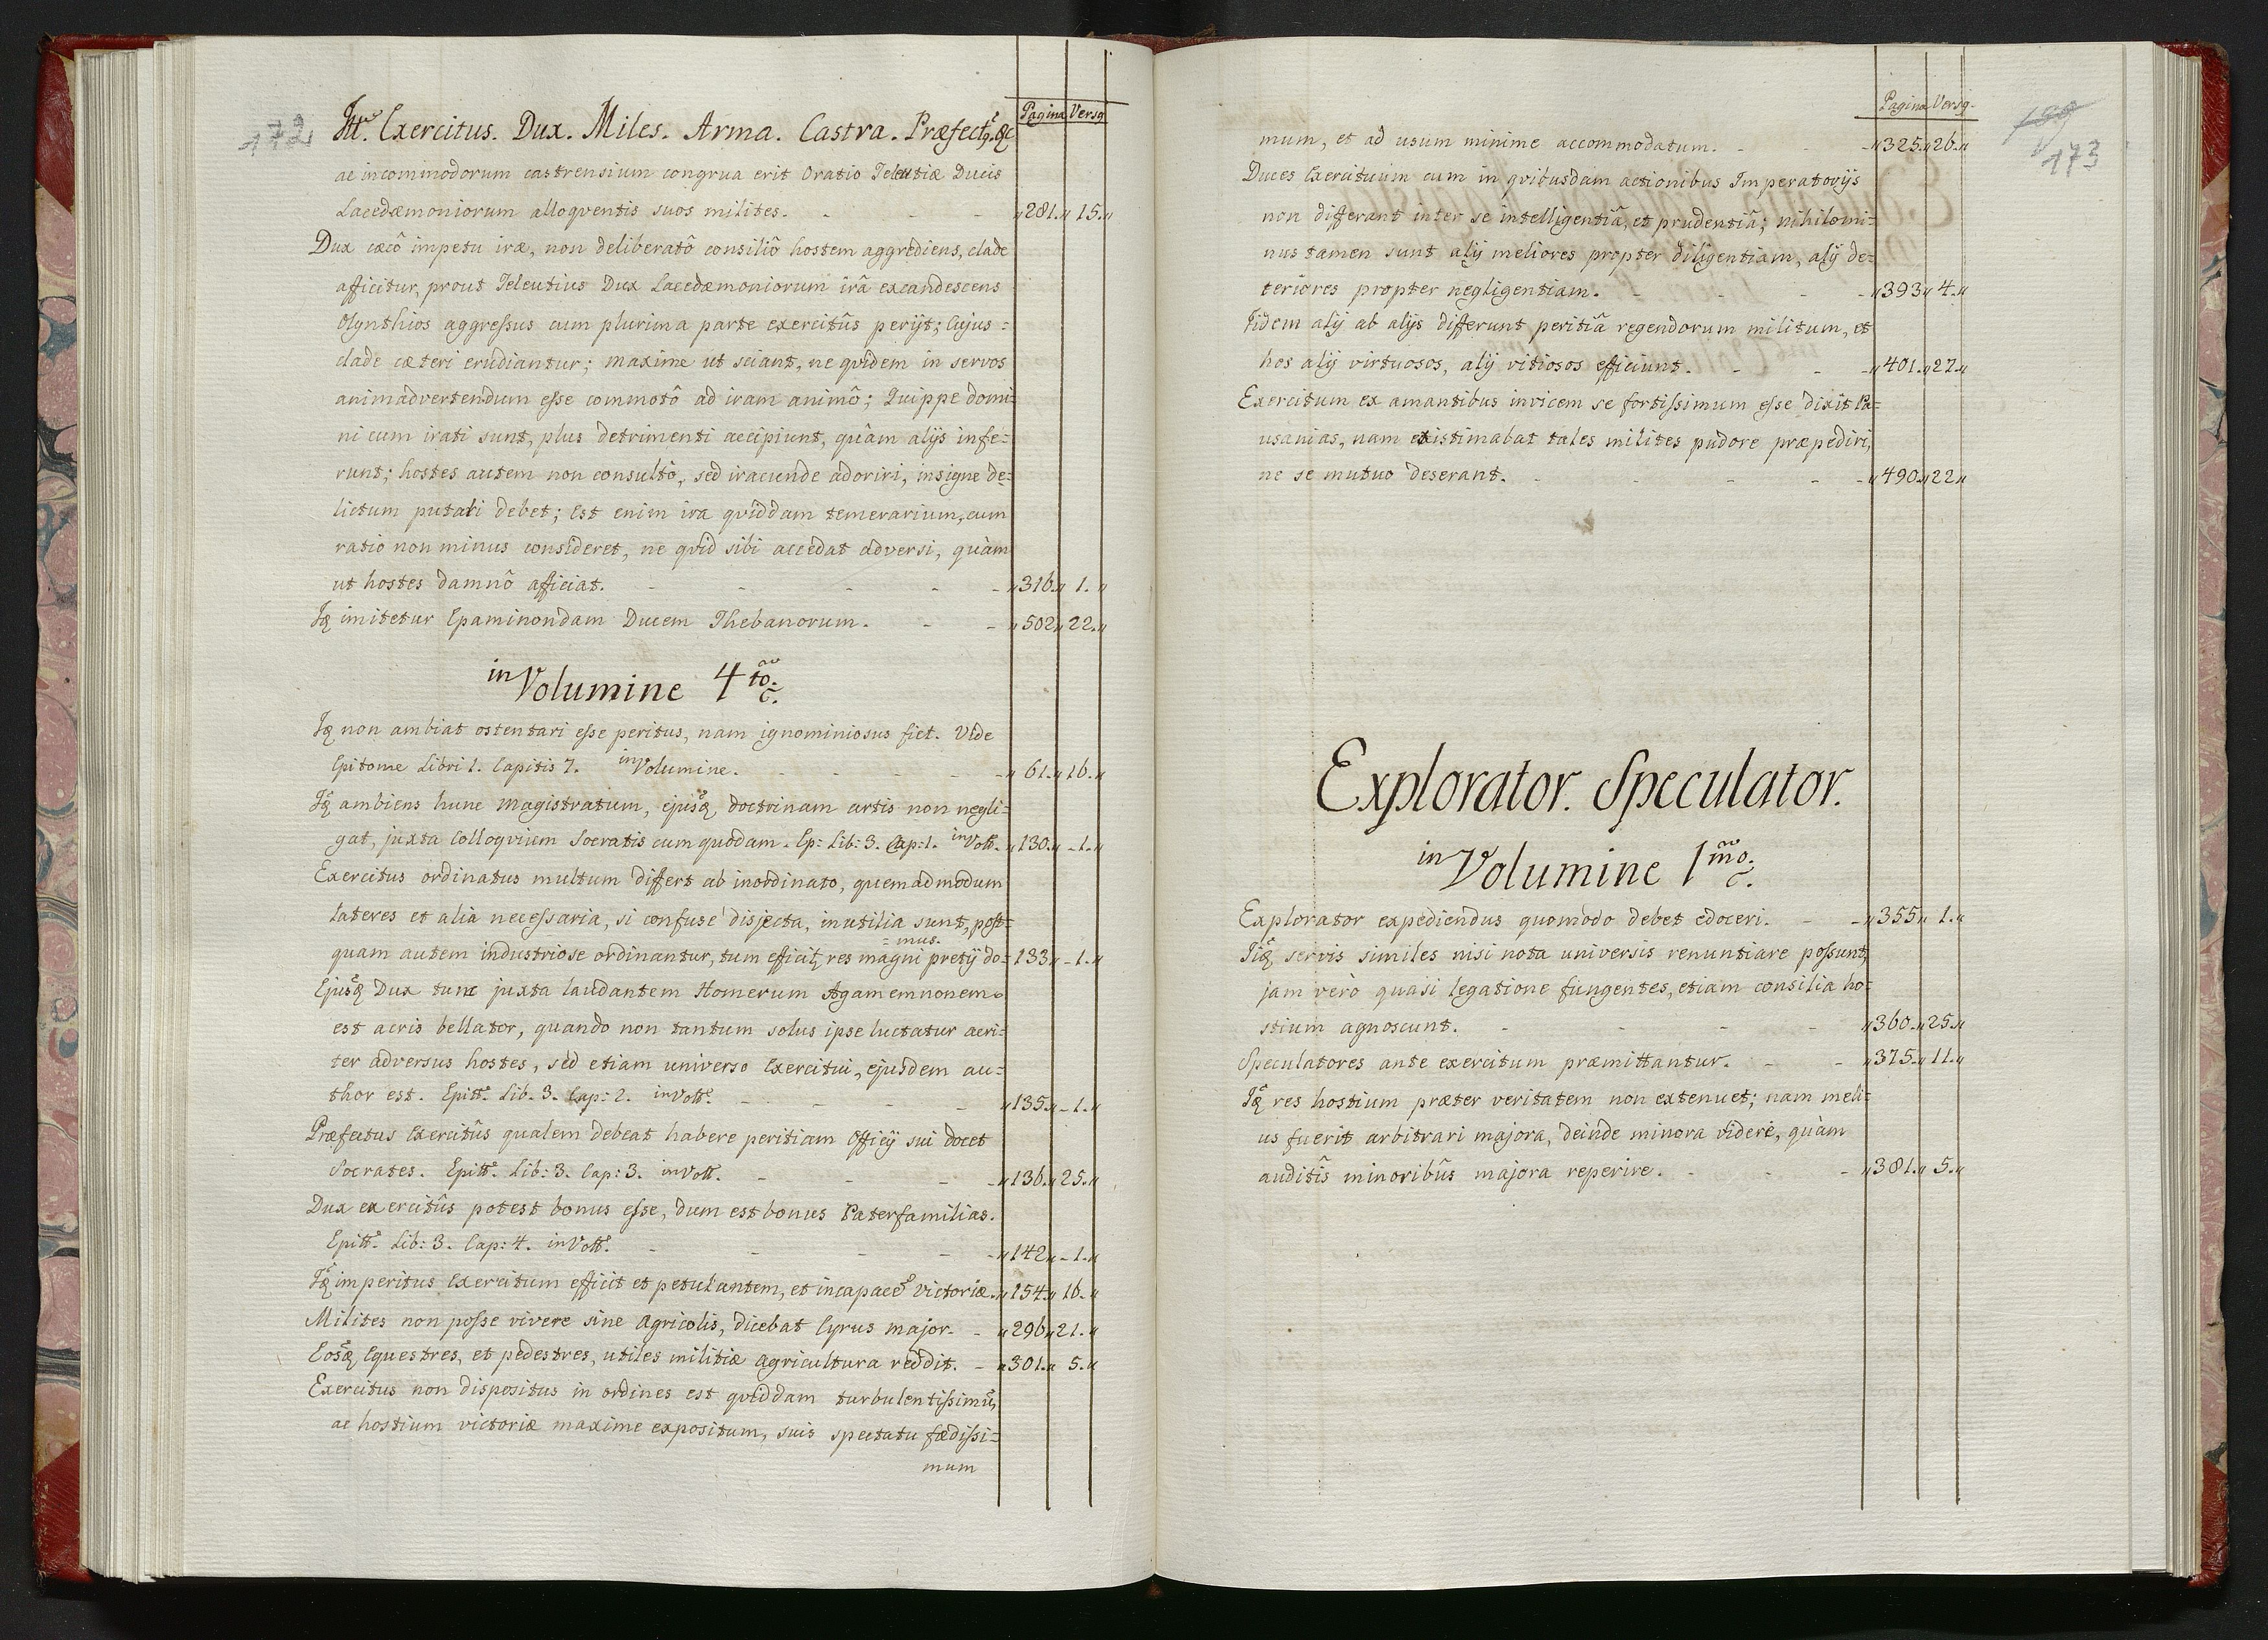 172
Ittē. Exercitus. Dux. Miles. Arma. Castra. Præfectq̃. &c
Pagina Versq
ac incommodorum castrensium congrua erit Oratio Teleutiæ Ducis
Lacedæmoniorum alloqventis suos milites. - - - „281.„ 15.„
Dux cæcô impetu iræ, non deliberatô consiliô hostem aggrediens, clade
afficitur, prout Teleutius Dux Lacedæmoniorum irâ excandescens
Olynthios aggressus cum plurima parte exercitûs perijt; Cujus =
clade cæteri erudiantur; maxime ut sciant, ne qvidem in servos
animadvertendum esse commotô ad iram animô; Quippe domi=
ni cum irati sunt, plus detrimenti accipiunt, quàm alijs infe=
runt; hostes autem non consultô, sed iracunde adoriri, insigne de=
lictum putari debet; Est enim ira qviddam temerarium, cum
ratio non minus consideret, ne qvid sibi accedat adversi, quàm
ut hostes damnô afficiat. - - - - - „316.„ 1. „
Iq̃ imitetur Epaminondam Ducem Thebanorum. - - „502„ 22.„
in Volumine 4to.
Iq̃ non ambiat ostentari esse peritus, nam ignominiosus fiet. Vide
Epitome Libri 1. Capitis 7. in Volumine. - - - - - „ 61.„ 16.„
Iq̃ ambiens hunc Magistratum, ejusq̃, doctrinam artis non negli=
gat, juxta Colloqvium Socratis cum quodam. Ep: Lib: 3. Cap: 1. in Voll. „130.„ - 1.„
Exercitus ordinatus multum differt ab inordinato, quemadmodum
lateres et alia necessaria, si confuse disjecta, inutilia sunt, post=
= mus.
quam autem industriose ordinantur, tum efficit, res magni pretij do= 133„ - 1.„
Ejusq̃ Dux tunc juxta laudantem Homerum Agamemnonem
est acris bellator, quando non tantum solus ipse luctatur acri=
ter adversus hostes, sed etiam universo Exercitui, ejusdem au=
thor est. Epitt. Lib. 3. Cap: 2. in Voll. - - - - „135„ - 1.„
Præfectus Exercitûs qualem debeat habere peritiam Officij sui docet
Socrates. Epitt. Lib: 3. Cap: 3. in Voll. - - - - „136.„ 25.„
Dux exercitûs potest bonus esse, dum est bonus Paterfamilias.
Epitt. Lib: 3. Cap: 4. in Voll. - - - - - „142„ - 1.„
Iq̃ imperitus Exercitum efficit et petulantem, et incapacē victoriæ. „154„ 16.„
Milites non posse vivere sine Agricolis, dicebat Cyrus major. - „296„ 21.„
Eosq̃ Equestres, et pedestres, utiles militiæ agricultura reddit. - „301.„ 5.„
Exercitus non dispositus in ordines est qviddam turbulentissimū,
ac hostium victoriæ maxime expositum, suis spectatu fœdissi=
mum
Pagina Versq.
199
173
mum, et ad usum minime accommodatum. - - - „325.„ 26.„
Duces Exercituum cum in qvibusdam actionibus Imperatorijs
non differant inter se intelligentiâ, et prudentiâ; nihilomi=
nus tamen sunt alij meliores propter diligentiam, alij de=
teriores propter negligentiam. - - - - „393„ 4.„
Iidem alij ab alijs differunt peritiâ regendorum militum, et
hos alij virtuosos, alij vitiosos efficiunt. - - - „401.„ 27.„
Exercitum ex amantibus invicem se fortissimum esse dixit Pa=
usanias, nam existimabat tales milites pudore præpediri,
ne se mutuo deserant. - - - - - „490.„ 22„
Explorator. Speculator.
in Volumine 1mo.
Explorator expediendus quomodo debet edoceri. - - „355„ 1.„
Iiq̃ servis similes nisi nota universis renuntiare possunt,
jam verò quasi legatione fungentes, etiam consilia ho=
stium agnoscunt. - - - - „360.„ 25.„
Speculatores ante exercitum præmittantur. - - „375.„ 11.„
Iq̃ res hostium præter veritatem non extenuet; nam meli=
us fuerit arbitrari majora, deinde minora videre, quàm
auditîs minoribûs majora reperire. - - - „381.„ 5.„